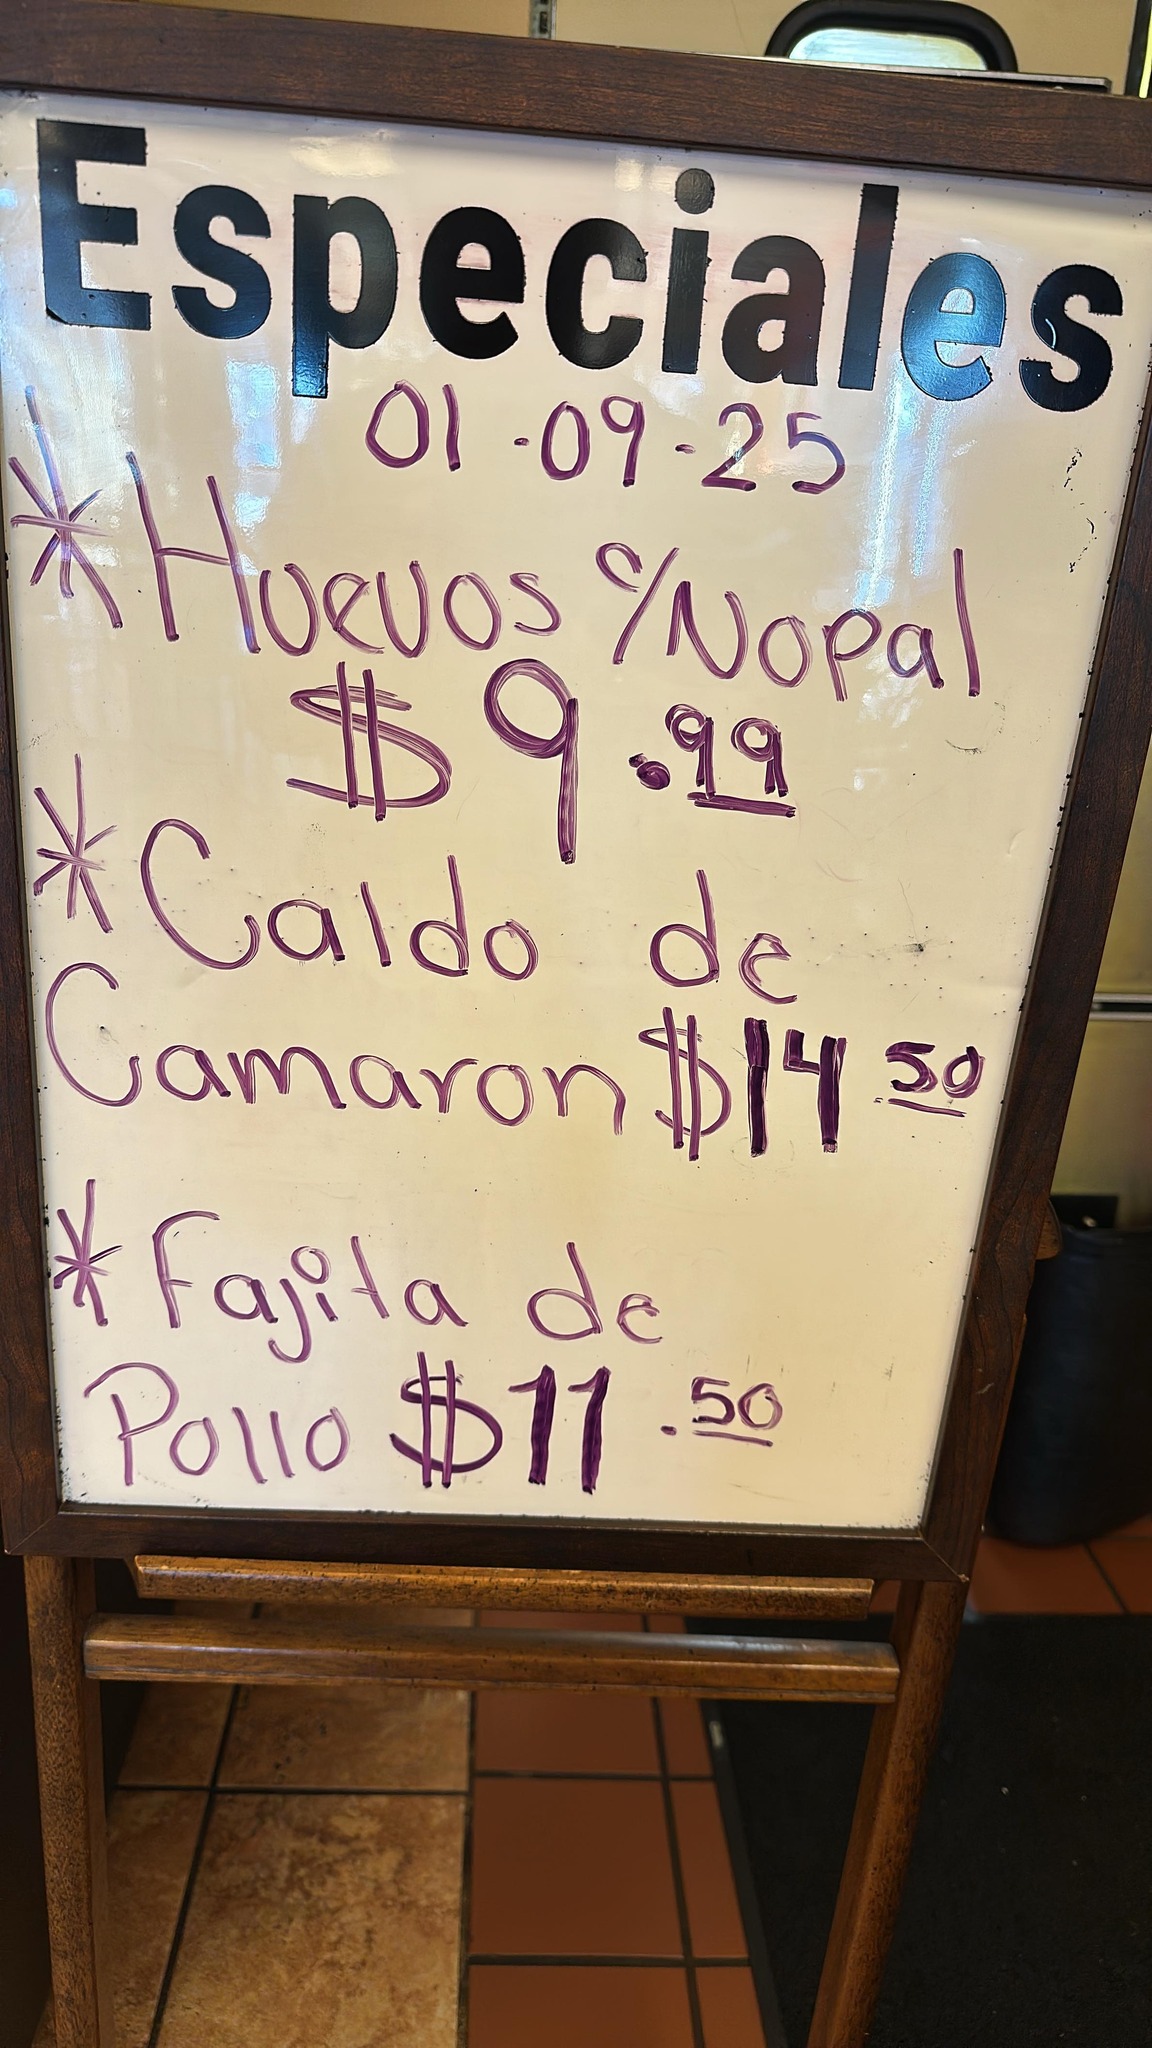 Especiales
01-09-25
* Huevos c/Nopal
$9.99
* Caldo de
Camaron $14.50
* Fajita de
Pollo $11.50